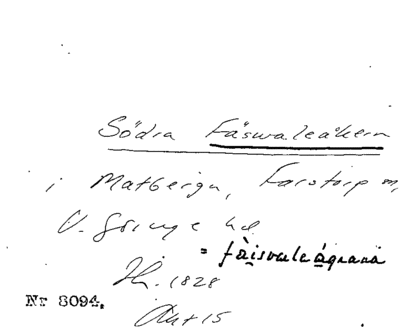 Södra Fäsvaleåkern
i Matbergn, Farstorp sn,
V. Göinge hd
= fàisvaleágrana
Jh. 1828
Nr 8094.
Akt 15